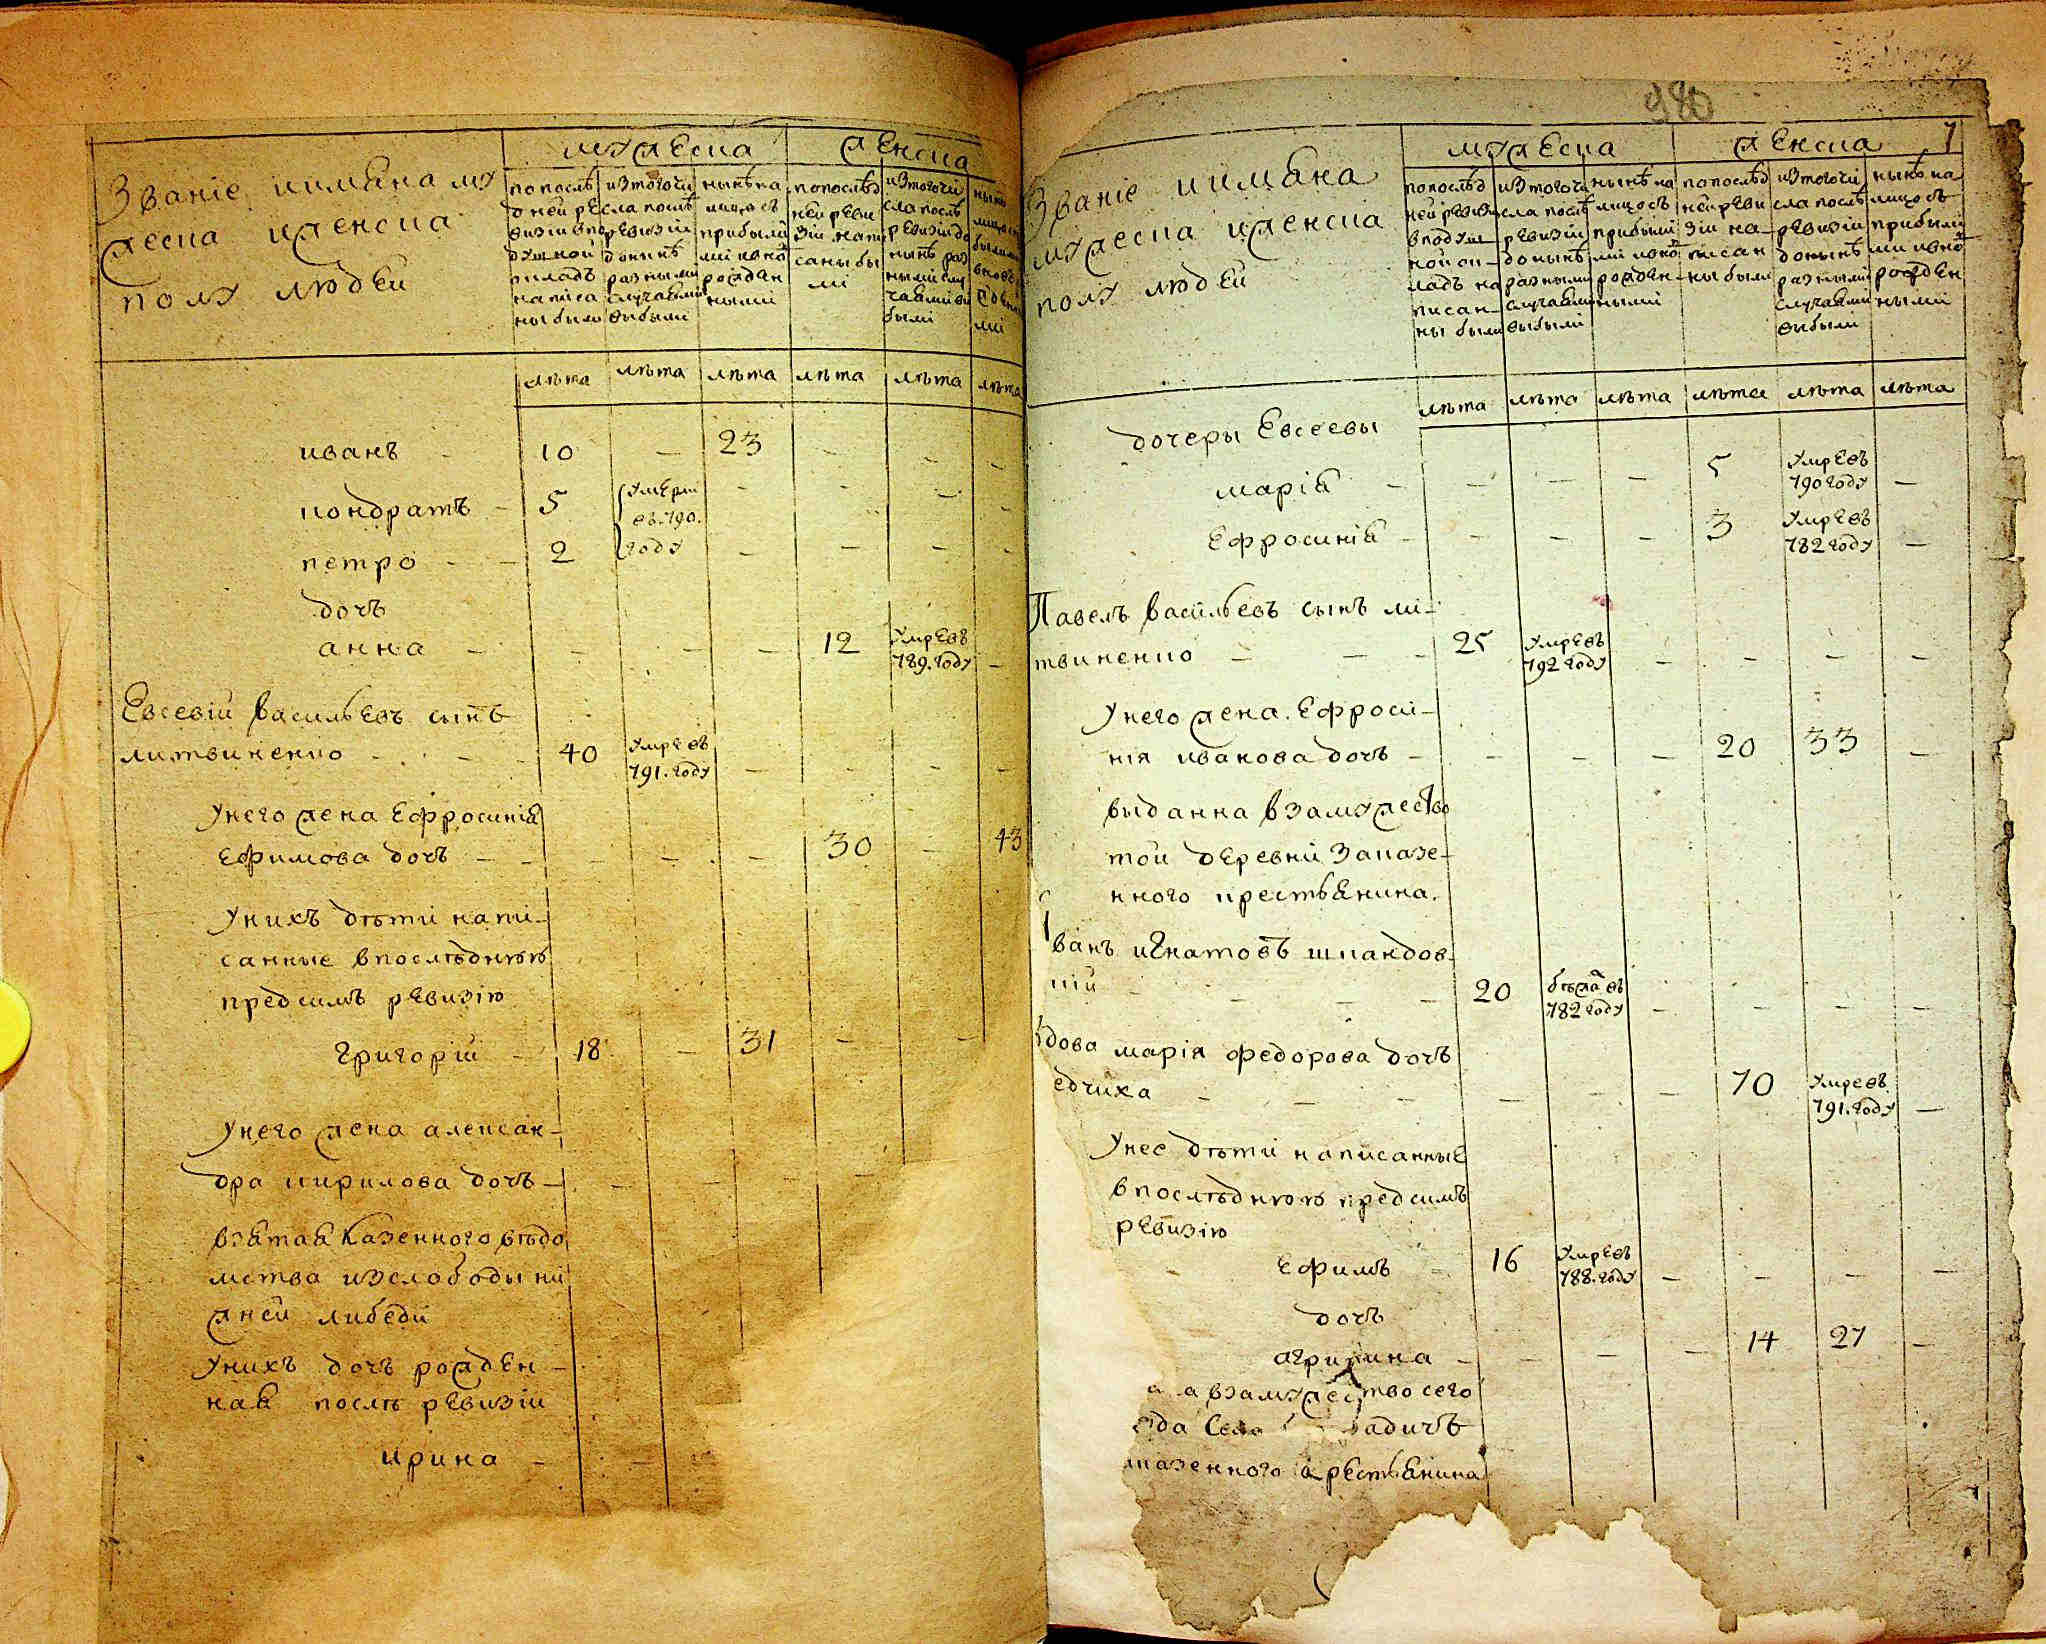 Званіе иимѧна му
жеска иженска
полу людей
мужеска
женска
попослѣ
дней ре
визіи впо
душной
окладъ
написа
ны были
изтогочи
сла послѣ
ревизіи
донынѣ
разными
случаѧми
выбыли
нынѣ на
лицо съ
прибыли
ми ивно
рожден
ными
попослѣд
ней реви
зіи напи
саны бы
ли
изтогочи
сла послѣ
ревизіи до
нынѣ раз
ными слу
чаѧми вы
были
лѣта лѣта лѣта лѣта лѣта лѣта
иванъ 10 — 23 — — —
кондратъ — 5 умерли — — — —
въ 790.
петро — 2 году — — — —
дочь
анна — — — — 12 умре въ —
789. году
Евсевій васильевъ сынъ
литвиненко — 40 умре въ
791. году — — — —
Унего жена Ефросиніѧ
Ефимова дочь — — — — 30 — 43
Унихъ дѣти напи-
санные впослѣднюю
предсимъ ревизію
григорій — 18 — 31 — —
Унего жена алексан-
дра кирилова дочь — — — — —
взѧтаѧ казенного вѣдо
мства изслободы ни
жней либеди
Унихъ дочь рожден-
наѧ послѣ ревизіи
ирина — — —
980
7
Званіе иимѧна
мужеска иженска
полу людей
мужеска
женска
попослѣд
ней ревизіи
вподуш
ной ок-
ладъ на
писан-
ны были
изтогочи
сла послѣ
ревизіи
донынѣ
разными
случаѧми
выбыли
нынѣ на
лицо съ
прибыли
ми ивно
рожден
ными
попослѣд
ней реви
зіи на-
писан
ны были
изтогочи
сла послѣ
ревизіи
донынѣ
разными
случаѧми
выбыли
нынѣ на
лицо съ
прибыли
ми ивно
рожден
ными
лѣта лѣта лѣта лѣта лѣта лѣта
дочеры Евсеевы
маріѧ — — — — 5 умре въ
790 году —
Ефросиніѧ — — — — 3 умре въ
782 году —
Павелъ васильевъ сынъ ли-
твиненко — — — 25 умре въ
792 году — — — —
Унего жена. Ефроси-
нія иванова дочь — — — — 20 33 —
выданна взамужество
той деревни заказе-
нного крестьѧнина.
ванъ игнатовъ шкандов-
кій — — — — 20 бѣжа въ
782 году — — — —
вдова марія федорова дочь
едчиха — — — — — — 70 умре въ
791. году —
Унее дѣти написанные
впослѣднюю предсимъ
ревизію
Ефимъ — 16 умре въ
788. году — — — —
дочь
агрипина — — — — 14 27 —
а взамужество сего
ода села адичъ
казенного крестьѧнина